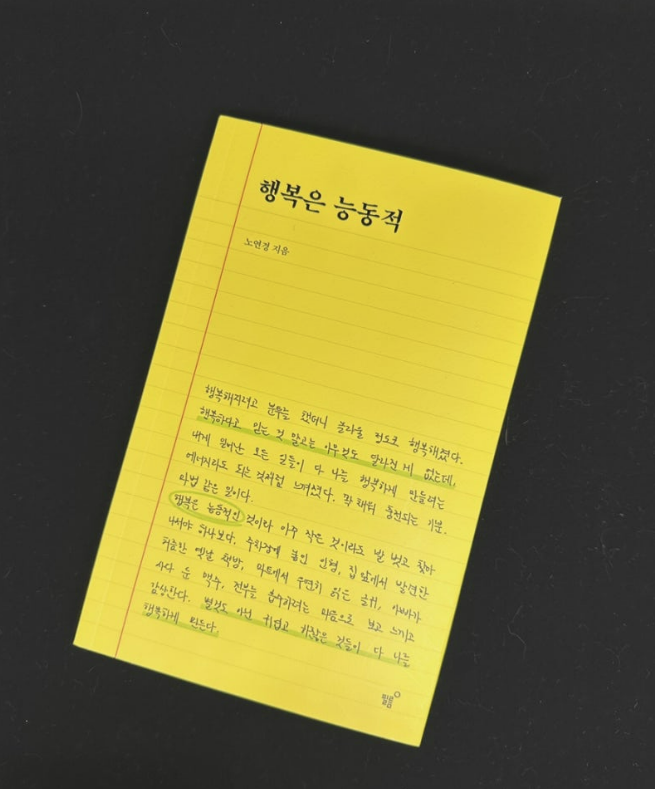 행복은 능동적
노연경 지음
행복해지려고 분투를 했더니 놀라울 정도로 행복해졌다.
행복하다고 믿는 것 말고는 아무것도 달라진 게 없는데,
내게 일어난 모든 일들이 다 나를 행복하게 만들려는
에너지라도 되는 것처럼 느껴졌다. 꽉 채워 충전되는 기분.
마법 같은 일이다.
행복은 능동적인 것이라 아주 작은 것이라도 발 벗고 찾아
나서야 하나보다. 주차장에 붙인 인형, 집 앞에서 발견한
허름한 옛날 책방, 마트에서 우연히 읽은 글귀, 아빠가
사다 둔 맥주, 전부를 흡수하려는 마음으로 보고 느끼고
감상한다. 별것도 아닌 귀엽고 귀찮은 것들이 다 나를
행복하게 만든다.
필름